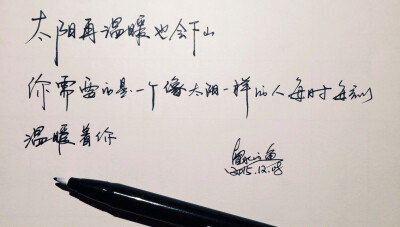 太阳再温暖也会下山
你需要的是一个像太阳一样的人每时每刻
温暖着你
2015.12.08